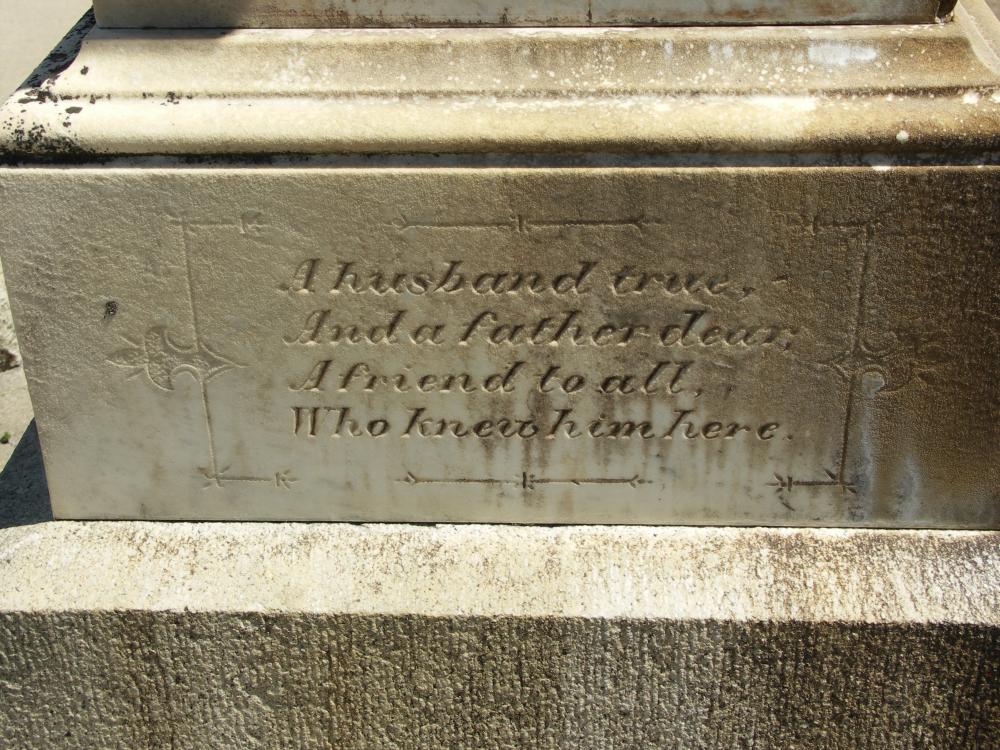 A husband true,
And a father dear,
A friend to all,
Who knew him here.